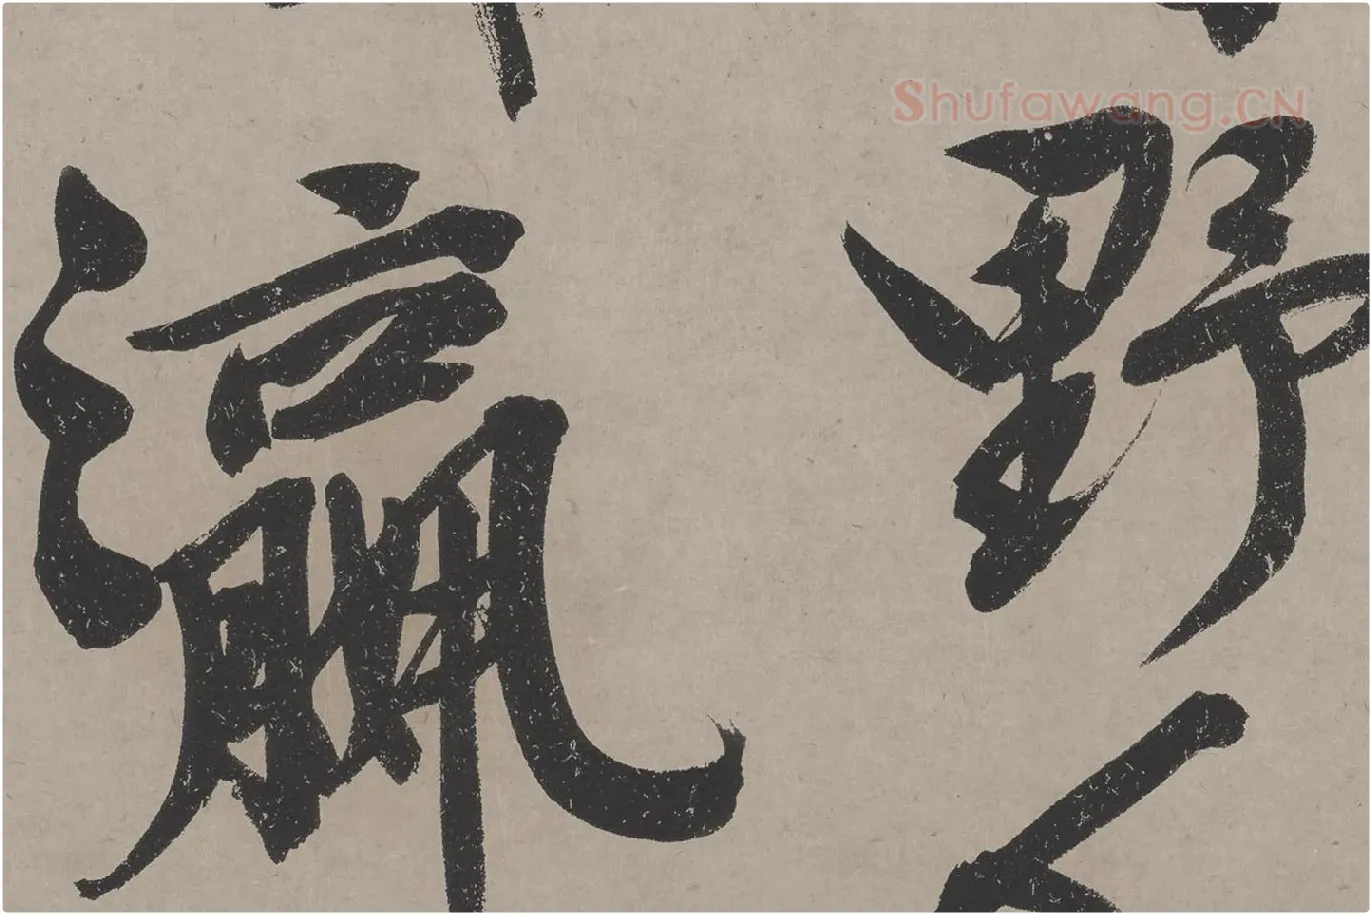 Shufawang.CN
野
瀛